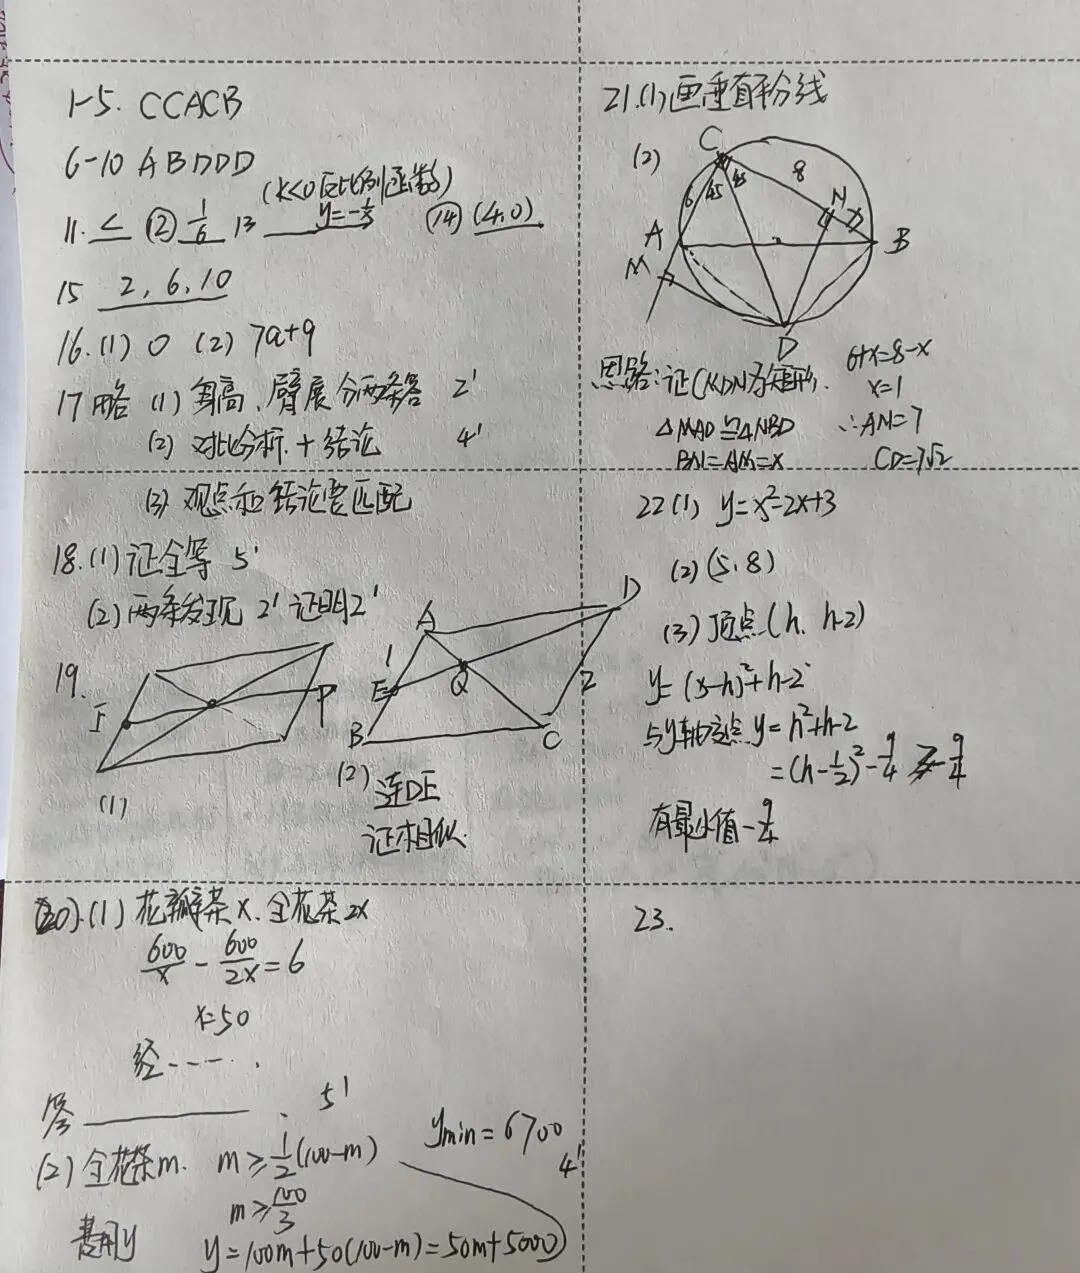 1-5. CCACB
6-10 ABDDD
(k<0反比例函数)
11. < ⑫ 1/6 13 y=-1/x ⑭ (4,0)
15 2, 6, 10
16. (1) 0 (2) 7a+9
17略 (1) 身高、臂展分两条答 2'
(2) 对比分析+结论 4'
(3) 观点和结论要匹配
18. (1) 证全等 5'
(2) 两条发现 2' 证明2'
19.
F P
(1)
A D
1 E Q 2
B C
(2) 连DE
证相似.
(20). (1) 花瓣茶x. 全花茶2x
600/x - 600/2x = 6
x=50
经----.
答 . 5'
(2) 全花茶m. m≥1/2(100-m)
m≥100/3
费用y y=100m+50(100-m)=50m+5000
ymin=6700
4'
21. (1) 画垂直平分线
(2)
C
6 45 45 8
N
A B
M
D
思路:证CMDN为矩形.
△MAD≌△NBD
BN=AM=x
6+x=8-x
x=1
∴AN=7
CD=7√2
22 (1) y=x²-2x+3
(2) (5,8)
(3) 顶点(h, h-2)
y=(x-h)²+h-2
与y轴交点 y=h²+h-2
=(h-1/2)²-9/4 ≥-9/4
有最小值-9/4
23.